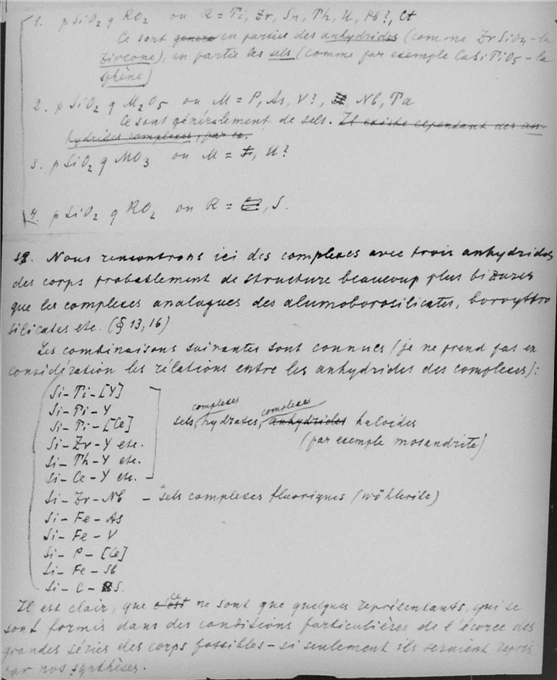 1. pSiO2 qRO2 ou R = Ti, Zr, Sn, Th, U, Pb?, Ct
Ce sont en parties des anhydrides (comme ZrSiO4 - la
zircone), en partie les sels (comme par exemple CaSiTiO5 - la
sphène)
2. pSiO2 qM2O5 ou M = P, As, V?, Nb, Ta
Ce sont généralement de sels. Il existe cependant des an-
hydrides complexes, par ex.
3. pSiO2 qMO3 ou M = , U?
4. pSiO2 qRO2 ou R = , S.
18. Nous rencontrons ici des complexes avec trois anhydrides
des corps probablement de structure beaucoup plus bizarre
que les complexes analogues des alumoborosilicates, boroyttro
silicates etc. (§ 13, 16)
Les combinaisons suivantes sont connues (je ne prend pas en
considération les rélations entre les anhydrides des complexes):
Si - Ti - [Y]
Si - Ti - Y
Si - Ti - [Ce]
Si - Zr - Y etc.
Si - Th - Y etc.
Si - Ce - Y etc.
complexes complexes
sels, hydrates, anhydrides haloides
(par exemple mosandrite)
Si - Zr - Nb - sels complexes fluoriques (wöhlerite)
Si - Fe - As
Si - Fe - V
Si - P - [Ce]
Si - Fe - Sb
Si - C - S.
Il est clair, que ce ne sont que quelques représentants, qui se
sont formés dans des conditions particulières de l'écorce des
grandes séries des corps possibles - si seulement ils seraient
par nos synthèses.